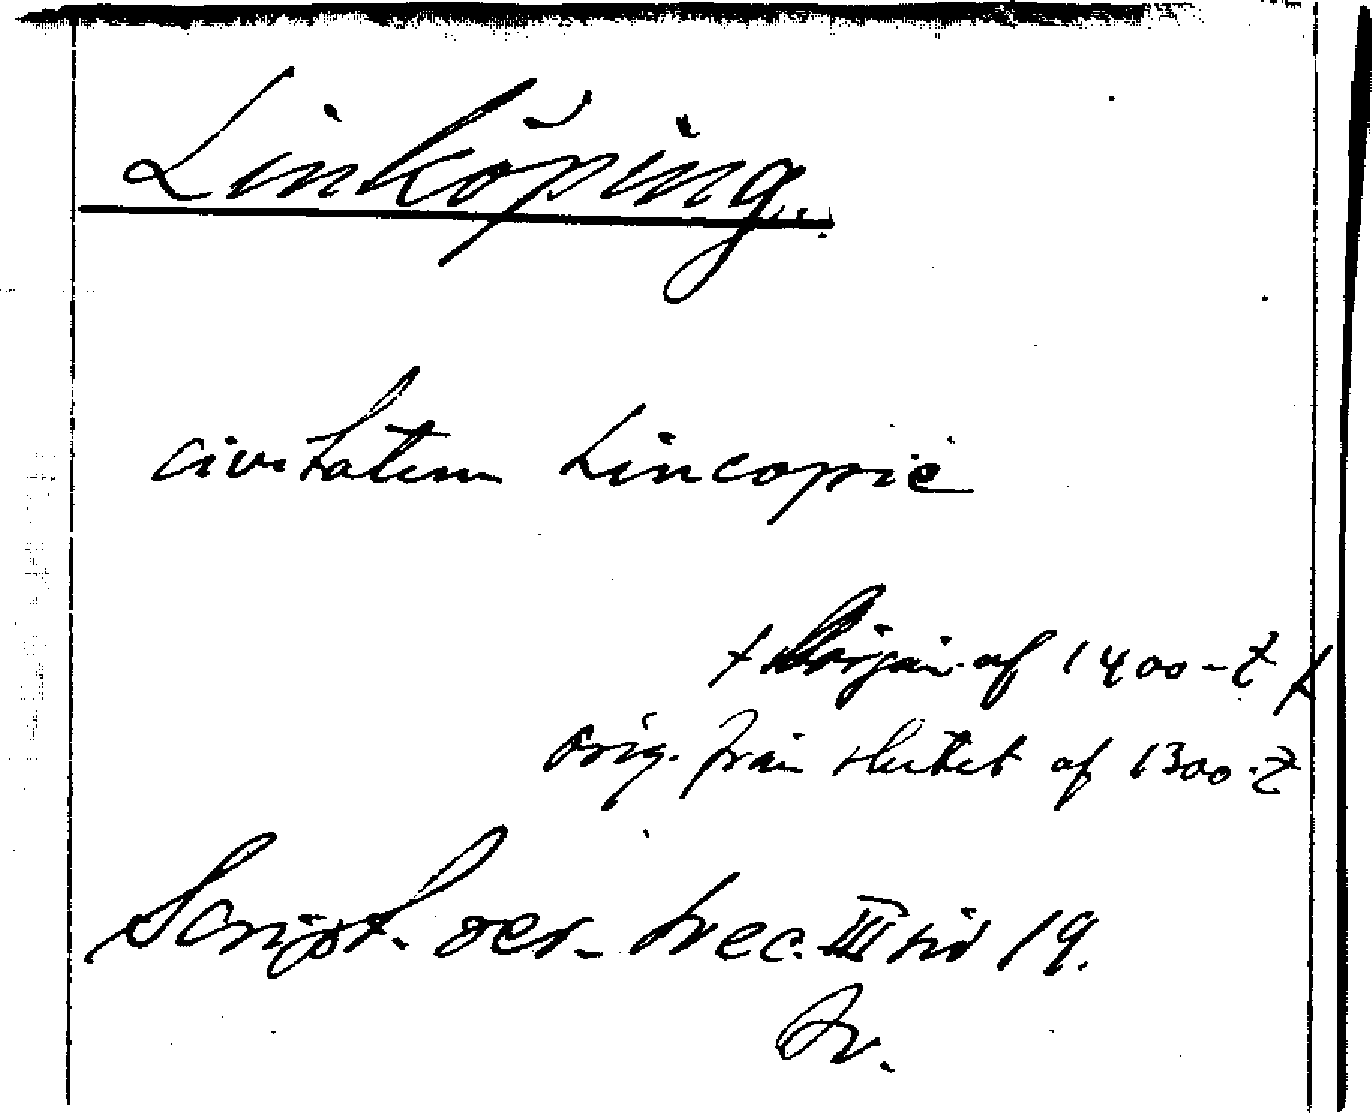 Linköping.
civitatem Lincopie
början af 1400-t
orig. från slutet af 1300-t
Script. rer. svec. III sid 19.